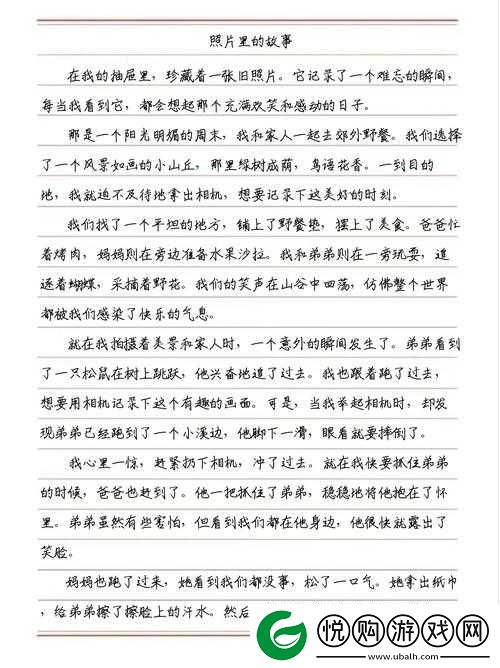 照片里的故事
在我的抽屉里，珍藏着一张旧照片。它记录了一个难忘的瞬间，
每当我看到它，都会想起那个充满欢笑和感动的日子。
那是一个阳光明媚的周末，我和家人一起去郊外野餐。我们选择
了一个风景如画的小山丘，那里绿树成荫，鸟语花香。一到目的
地，我就迫不及待地拿出相机，想要记录下这美好的时刻。
我们找了一个平坦的地方，铺上了野餐垫，摆上了美食。爸爸忙
着烤肉，妈妈则在旁边准备水果沙拉。我和弟弟则在一旁玩耍，追
逐着蝴蝶，采摘着野花。我们的笑声在山谷中回荡，仿佛整个世界
都被我们感染了快乐的气息。
就在我拍摄着美景和家人时，一个意外的瞬间发生了。弟弟看到
了一只松鼠在树上跳跃，他兴奋地追了过去。我也跟着跑了过去，
想要用相机记录下这个有趣的画面。可是，当我举起相机时，却发
现弟弟已经跑到了一个小溪边，他脚下一滑，眼看就要摔倒了。
我心里一惊，赶紧扔下相机，冲了过去。就在我快要抓住弟弟
的时候，爸爸也赶到了。他一把抓住了弟弟，稳稳地将他抱在了怀
里。弟弟虽然有些害怕，但看到我们都在他身边，他很快就露出了
笑脸。
妈妈也跑了过来，她看到我们都没事，松了一口气。她拿出纸巾
，给弟弟擦了擦脸上的汗水。然后
悦购游戏网
www.ubalh.com